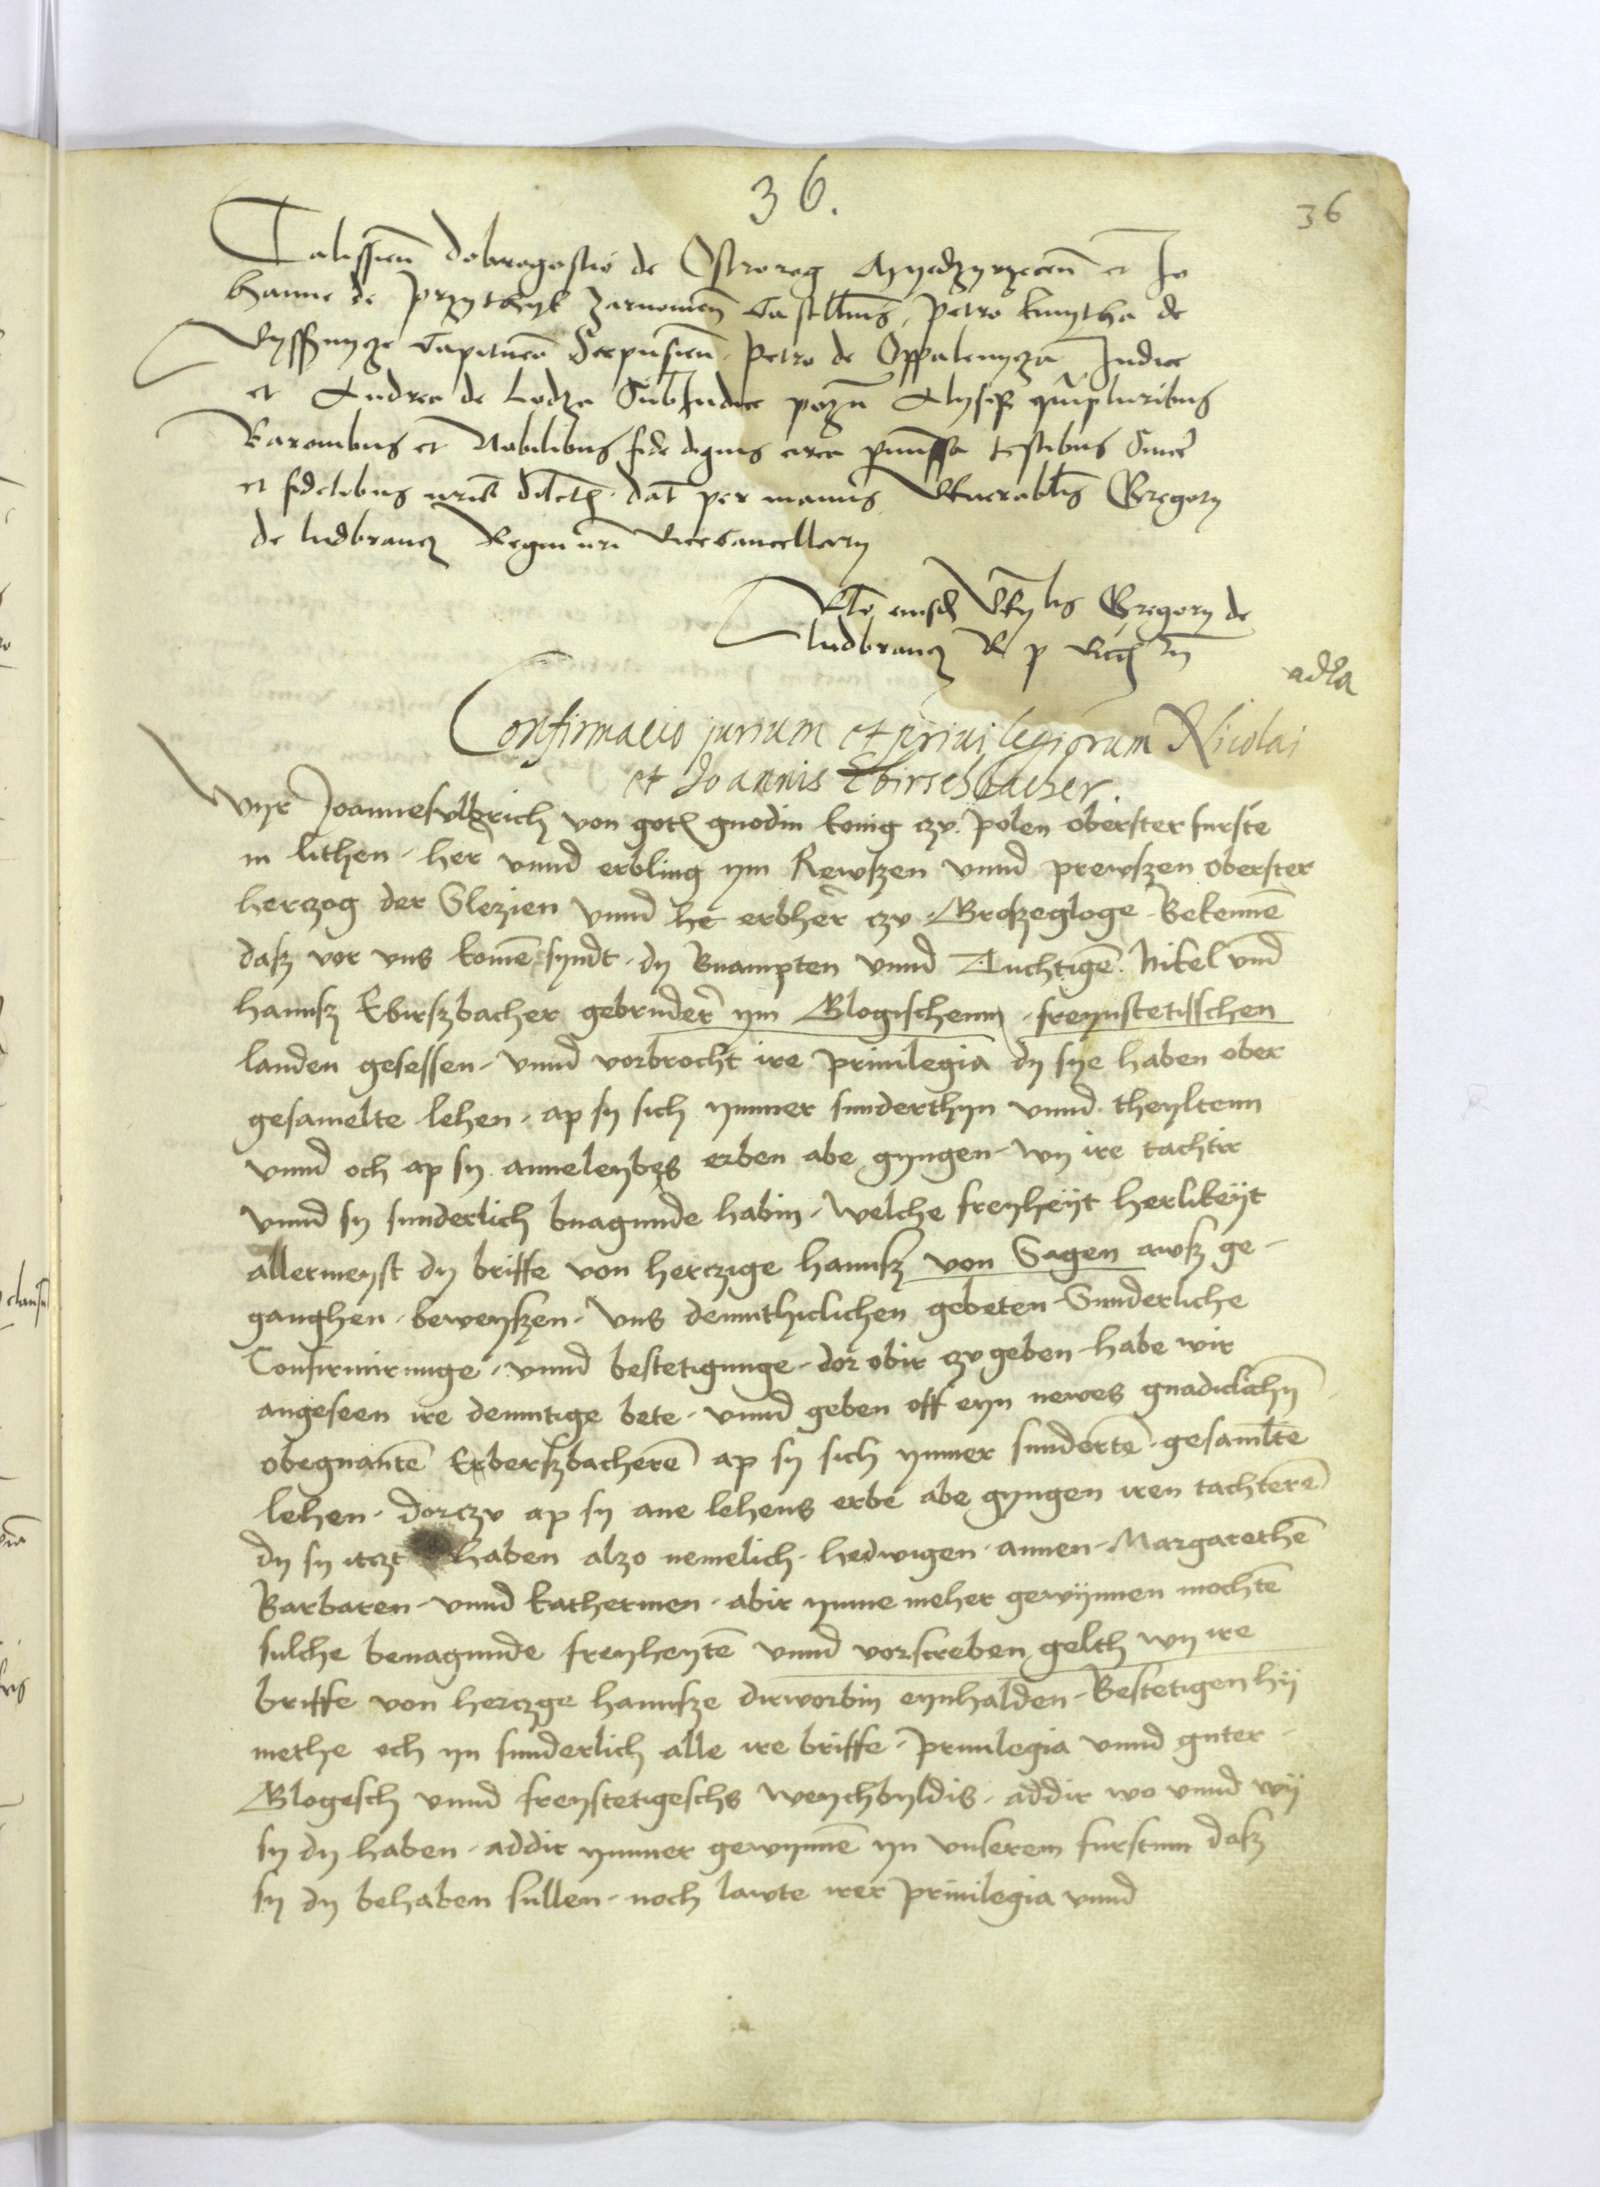 36.
36
Calissien Dobrogostio de Ostrorog Myedzyrzecen et Jo
hanne de Przythyk Zarnowien Castellnis, Petro kmytha de
Vyssnycze Capitneo Scepusien Petro de Oppalenycza Judice
et Andrea de Lodza SubJudice pozn Alysqz qmpluribus
Baronibus et Nobilibus fide dignis circa pmissa testibus Sincer
et fidelibus nris dilectis dat per manus Venerabilis Gregory
de ludbrancz Regni nri Vicecancellary
Rlo eiusd Venlis Gregory de
ludbrancz R p Vicecan
adla
Confirmacio jurium et priuilegiorum Nicolai
et Joannis Ebirschbacher
Wyr Joannesulbrich von gotz gnodin konig czu polen oberster furste
in lithen her vnnd erbling ym Rewszen vnnd prewszen oberster
herczog der Slezien vnnd he erbher czu Groszegloge Bekenne
dasz vor vns kome syndt dy Bnampten vnnd Tuchtige Nikel vnd
hannsz Ebirszbacher gebruder ym Glogischenn freynstetisschen
landen gesessen vnnd vorbrocht ire priuilegia dy sye haben ober
gesamelte lehen ap sy sich ymmer sunderthyn vnnd theyltenn
vnnd och ap sy anneleybes erben abe gyngen wy ire tachtir
vnnd sy sunderlich bnagunde habin welche freyheyt herlikeyt
allermeyst dy briffe von herczige hannsz von Sagen awsz ge
ganghen beweyszen vns demuthiclichen gebeten Sunderliche
Confirmirunge vnnd bestetigunge dor obir czu geben habe wir
angeseen ire demutige bete vnnd geben off eyn newes gnadiclichn
obegnante Erberszbachere ap sy sich ymmer sunderte gesamlte
lehen dorczu ap sy ane lehens erbe abe gyngen iren tachtere
dy sy itczt haben alzo nemelich hedwigen annen Margarethe
Barbaren vnnd katherinen abir ymme meher gewynnen mochte
sulche benagunde freyheyte vnnd vorscreben gelth wy ire
briffe von herczge hannsze dirworbin eynhalden Bestetigen hy
methe och yn sunderlich alle ire briffe priuilegia vnnd guter
Glogesch vnnd freystetigeschs weychbyldis addir wo vnnd wy
sy dy haben addir ymmer gewynne yn vnserem furstum dasz
sy dy behaben sullen noch lawte irer priuilegia vnnd